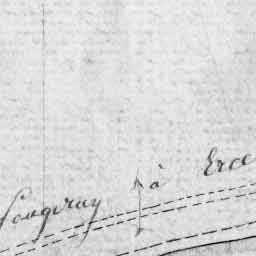 Fougeray à Erce